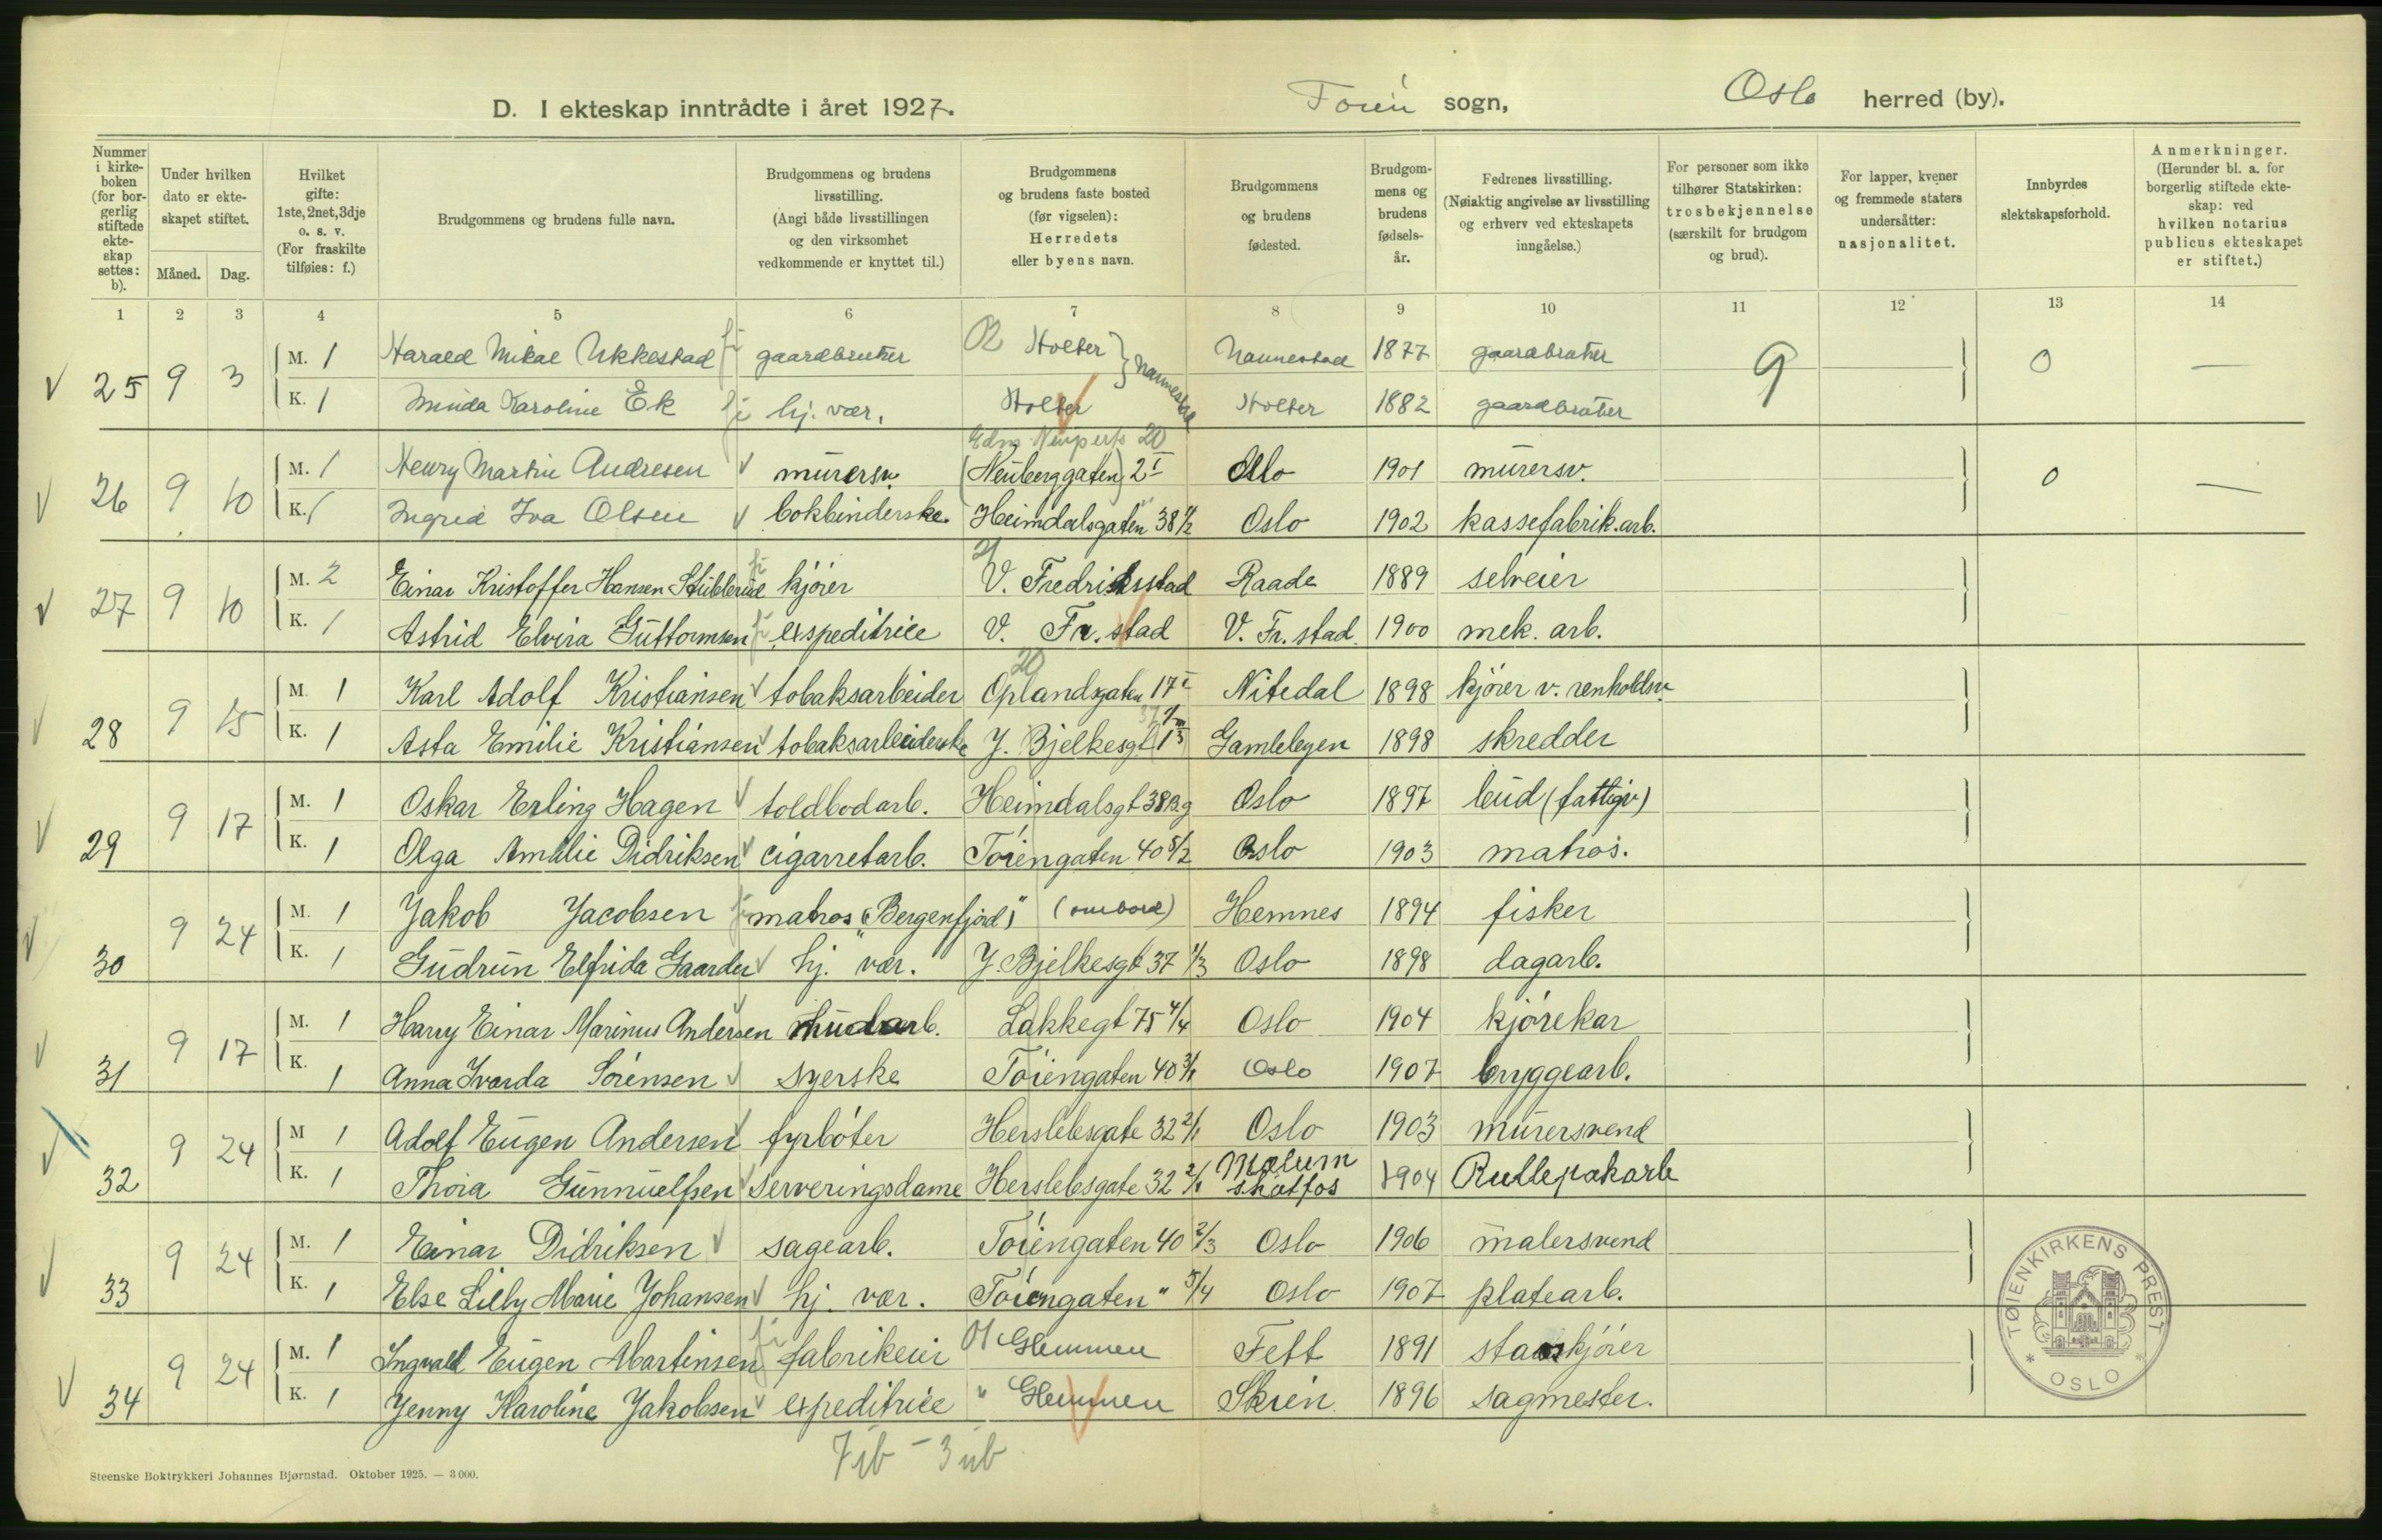 D. I ekteskap inntrådte i året 1927. Toien sogn, Oslo herred (by).
Nummer i kirke-boken (for bor-gerlig stiftede ekte-skap settes: b).
Under hvilken dato er ekte-skapet stiftet.
Måned. Dag.
Hvilket gifte: 1ste, 2net, 3dje o. s. v. (For fraskilte tilføies: f.)
Brudgommens og brudens fulle navn.
Brudgommens og brudens livsstilling. (Angi både livsstillingen og den virksomhet vedkommende er knyttet til.)
Brudgommens og brudens faste bosted (før vigselen): Herredets eller byens navn.
Brudgommens og brudens fødested.
Brudgom-mens og brudens fødsels-år.
Fedrenes livsstilling. (Nøiaktig angivelse av livsstilling og erhverv ved ekteskapets inngåelse.)
For personer som ikke tilhører Statskirken: trosbekjennelse (særskilt for brudgom og brud).
For lapper, kvener og fremmede staters undersåtter: nasjonalitet.
Innbyrdes slektskapsforhold.
Anmerkninger. (Herunder bl. a. for borgerlig stiftede ekte-skap: ved hvilken notarius publicus ekteskapet er stiftet.)
1 2 3 4 5 6 7 8 9 10 11 12 13 14
25 9 3 M. 1 Harald Mikal Ukkestad gaardbruker Holter } Nannestad Nannestad 1877 gaardbruker 9 0 —
K. 1 Minda Karoline Ek hj. vær. Holter Holter 1882 gaardbruker
Edm. Neuperts 20
26 9 10 M. 1 Henry Martin Andresen murersv. (Neuberggaten) 2 I Oslo 1901 murersv. 0 —
K. 1 Ingrid Iva Olsen bokbinderske. Heimdalsgaten 38 1/2 Oslo 1902 kassefabrik.arb.
27 9 10 M. 2 Einar Kristoffer Hansen Stubberud kjörer V. Fredriksstad Raade 1889 selveier
K. 1 Astrid Elvira Guttormsen expeditrice V. Fr.stad V. Fr. stad. 1900 mek. arb.
28 9 15 M. 1 Karl Adolf Kristiansen tobaksarbeider Oplandsgaten 17 I Nitedal 1898 kjörer v. renholdsv.
K. 1 Asta Emilie Kristiansen tobaksarbeiderske J. Bjelkesgt. Gamlebyen 1898 skredder
29 9 17 M. 1 Oskar Erling Hagen toldbodarb. Heimdalsgt 38 Oslo 1897 bud (fattigv)
K. 1 Olga Amalie Didriksen cigarretarb. Töiengaten 40 5/2 Oslo 1903 matros.
30 9 24 M. 1 Jakob Jacobsen matros "Bergensfjord" (ombord) Hemnes 1894 fisker
K. 1 Gudrun Elfrida Gaarder hj. vær. J. Bjelkesgt 37 1/3 Oslo 1898 dagarb.
31 9 17 M. 1 Harry Einar Marinus Andersen Lakkegt 75 4/4 Oslo 1904 kjörekar
K. 1 Anna Ivarda Sörensen syerske Töiengaten 40 3/1 Oslo 1907 bryggearb.
32 9 24 M 1 Adolf Eugen Andersen fyrböter Herslebsgate 32 2/1 Oslo 1903 murersvend
K. 1 Thora Gunnuelfsen serveringsdame Herslebsgate 32 2/1 Melum skotfos 1904 Rullepakarb
33 9 24 M. 1 Einar Didriksen sagearb. Töiengaten 40 2/3 Oslo 1906 malersvend
K. 1 Else Lilly Marie Johansen hj. vær. Töiengaten " 5/4 Oslo 1907 platearb.
34 9 24 M. 1 Ingvald Eugen Martinsen fabrikeier 01 Glemmen Fett 1891 stasskjörer
K. 1 Jenny Karoline Jakobsen expeditrice " Glemmen Skien 1896 sagmester.
7 ib – 3 ub
TØIENKIRKENS PREST * OSLO *
Steenske Boktrykkeri Johannes Bjørnstad. Oktober 1925. — 3000.